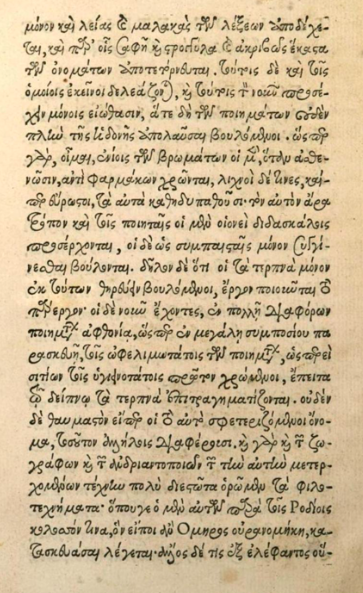 μόνον καὶ λείας καὶ μαλακὰς τῶν λέξεων ὑποδέχε-
ται, καὶ παρ' οἷς σαφῆ καὶ στρογγύλα καὶ ἀκριβῶς ἕκαστα
τῶν ὀνομάτων τούτοις δὲ καὶ τοῖς
ὁμοίοις ἐκεῖνοι καὶ τούτοις τὸν νοῦν προσέ-
χειν μόνοις εἰώθασιν, ἅτε δὴ τῶν ποιημάτων οὐδὲν
πλέον τῆς ἡδονῆς ἀπολαῦσαι βουλόμενοι. ὥσπερ
γὰρ, οἶμαι, ἐνίοις τῶν βρωμάτων οἱ μὲν, ὅταν ἀσθε-
νῶσιν, ἀντὶ φαρμάκων χρῶνται, λίχνοι δέ τινες, καὶ
τὰ αὐτὰ καθηδυπαθοῦσι· τὸν αὐτὸν ἄρα
τρόπον καὶ τοῖς ποιηταῖς οἱ μὲν οἱονεὶ διδασκάλοις
προσέρχονται, οἱ δὲ ὡς συμπαίσταις μόνον συγγί-
νεσθαι βούλονται. δῆλον δὲ ὅτι οἱ τὰ τερπνὰ μόνον
ἐκ τούτων θηρεύειν βουλόμενοι, ἔργον ποιοῦνται τὸ
πάρεργον· οἱ δὲ νοῦν ἔχοντες, ἐν πολλῇ διαφόρων
ποιημάτων ἀφθονίᾳ, ὥσπερ ἐν μεγάλῃ συμποσίου πα
ρασκευῇ, τοῖς ὠφελιμωτάτοις τῶν ποιημάτων, ὡσπερεὶ
σιτίων τοῖς ὑγιεινοτάτοις πρῶτον χρώμενοι, ἔπειτα
τῷ δείπνῳ τὰ τερπνὰ ἐπιτραγηματίζονται. οὐδὲν
δὲ θαυμαστὸν εἴπερ οἱ τὸ αὐτὸ σφετεριζόμενοι ὄνο-
μα, τοσοῦτον ἀλλήλοις διαφέρουσι, καὶ γὰρ καὶ τῶν ζω-
γράφων καὶ τῶν ἀνδριαντοποιῶν τῶν τὴν αὐτὴν μετερ-
χομένων τέχνην πολὺ διεστῶτα ὁρῶμεν τὰ φιλο-
τεχνήματα· ὅπουγε ὁ μὲν αὐτῶν παρὰ τοῖς Ῥοδίοις
κολοσσόν τινα, ὃν εἴποι ἂν Ὅμηρος οὐρανομήκη, κα-
τασκευάσαι λέγεται· ἄλλος δέ τις ἐξ ἐλέφαντος οὕ-